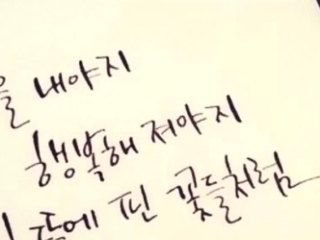 을 내야지
행복해 져야지
에 핀 꽃들처럼